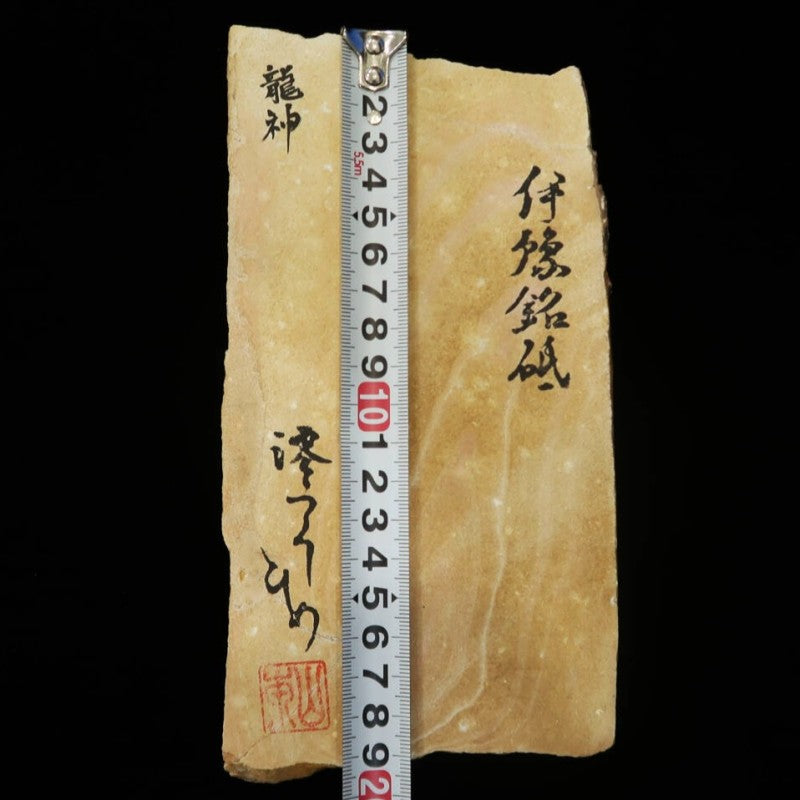 伊豫銘砥
龍神
2
3
5,5m
4
5
6
7
8
9
10
1
2
3
4
5
6
7
8
9